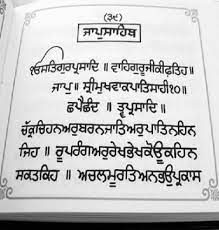 (੩੯)
ਜਾਪੁਸਾਹਿਬ
ੴਸਤਿਗੁਰਪ੍ਰਸਾਦਿ ॥ ਵਾਹਿਗੁਰੂਜੀਕੀਫਤਿਹ॥
ਜਾਪੁ॥ ਸ੍ਰੀਮੁਖਵਾਕਪਾਤਿਸਾਹੀ੧੦॥
ਛਪੈਛੰਦ ॥ ਤ੍ਵਪ੍ਰਸਾਦਿ ॥
ਚੱਕ੍ਰਚਿਹਨਅਰੁਬਰਨਜਾਤਿਅਰੁਪਾਤਿਨਹਿਨ
ਜਿਹ ॥ ਰੂਪਰੰਗਅਰੁਰੇਖਭੇਖਕੋਊਕਹਿਨ
ਸਕਤਕਿਹ ॥ ਅਚਲਮੂਰਤਿਅਨਭਉਪ੍ਰਕਾਸ